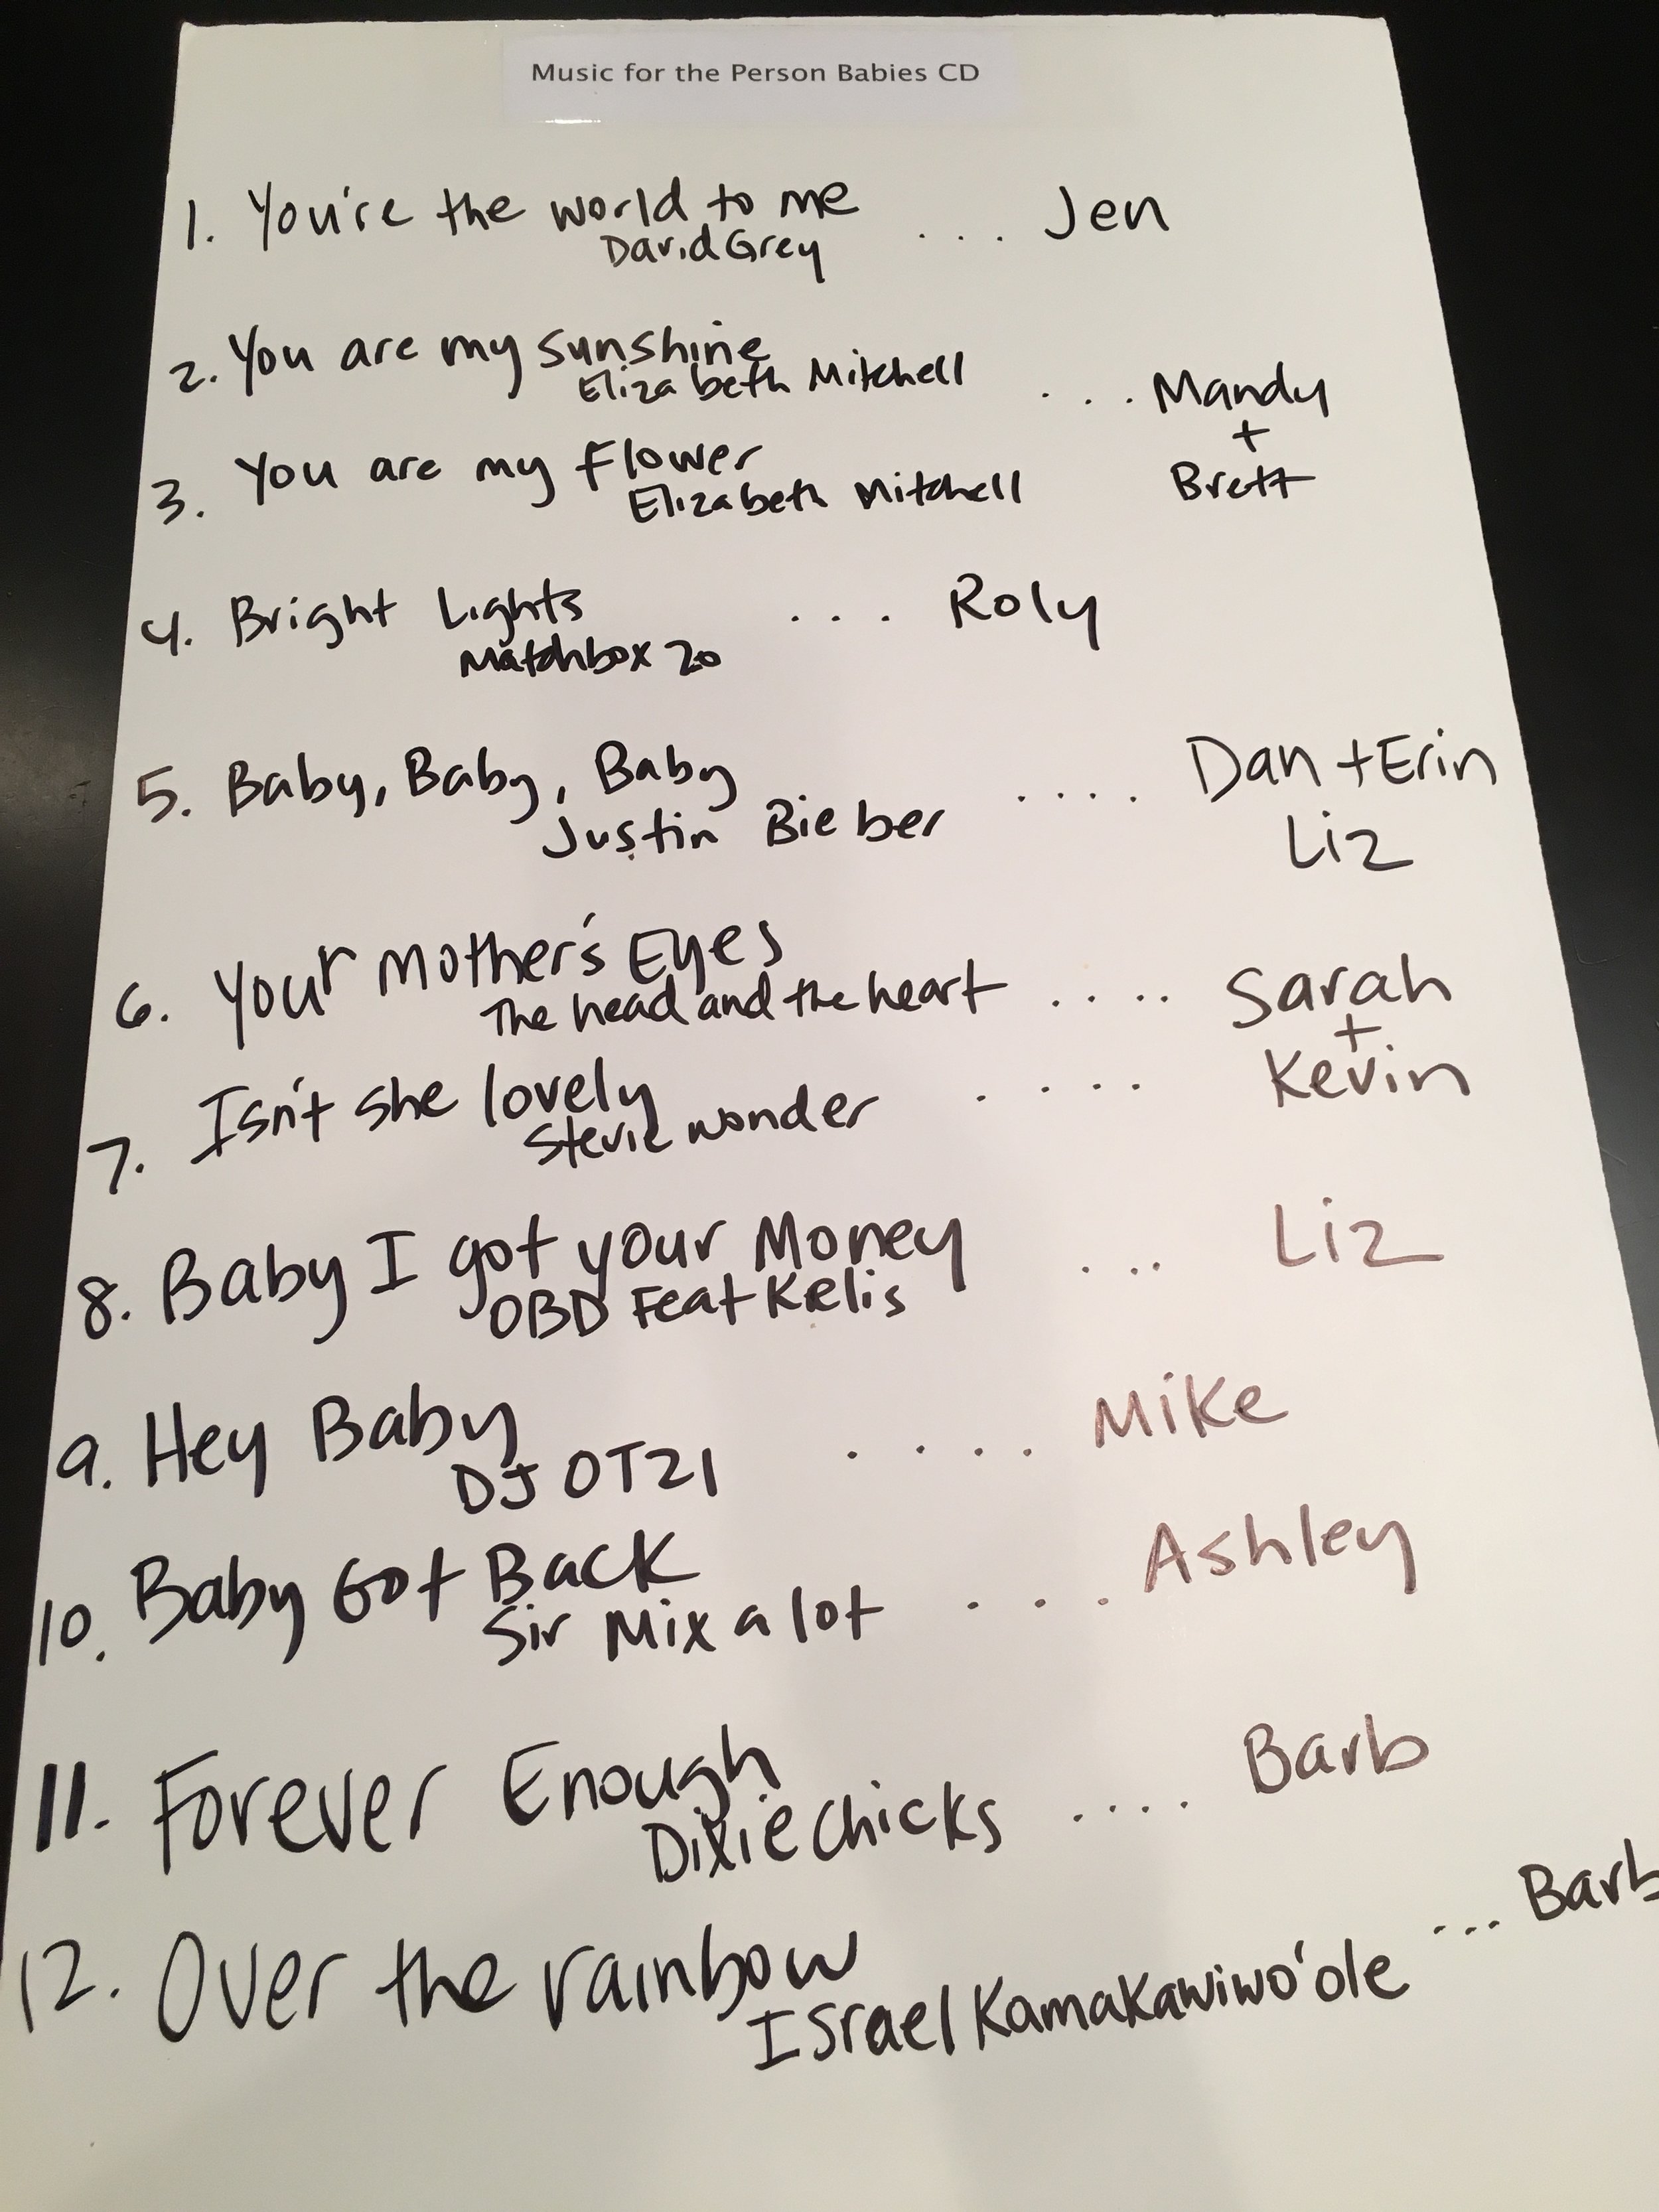 Music for the Person Babies CD
1. You're the world to me ... Jen
David Grey
2. You are my sunshine
Elizabeth Mitchell ... Mandy
+
3. You are my flower Brett
Elizabeth Mitchell
4. Bright Lights ... Roly
Matchbox 20
5. Baby, Baby, Baby .... Dan + Erin
Justin Bieber Liz
6. Your Mother's Eyes
The head and the heart .... Sarah
+
7. Isn't she lovely .... Kevin
Stevie wonder
8. Baby I got your Money ... Liz
OBD Feat Kelis
9. Hey Baby .... Mike
DJ OTZI
10. Baby Got Back ... Ashley
Sir Mix a lot
11. Forever Enough .... Barb
Dixie Chicks
12. Over the rainbow ... Barb
Israel Kamakawiwo'ole